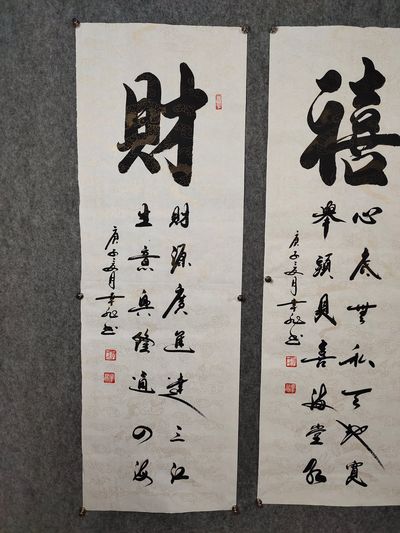 財
財源廣進達三江
生意興隆通四海
庚子夏月
禧
心底無私天地寬
舉頭見喜滿堂紅
庚子夏月